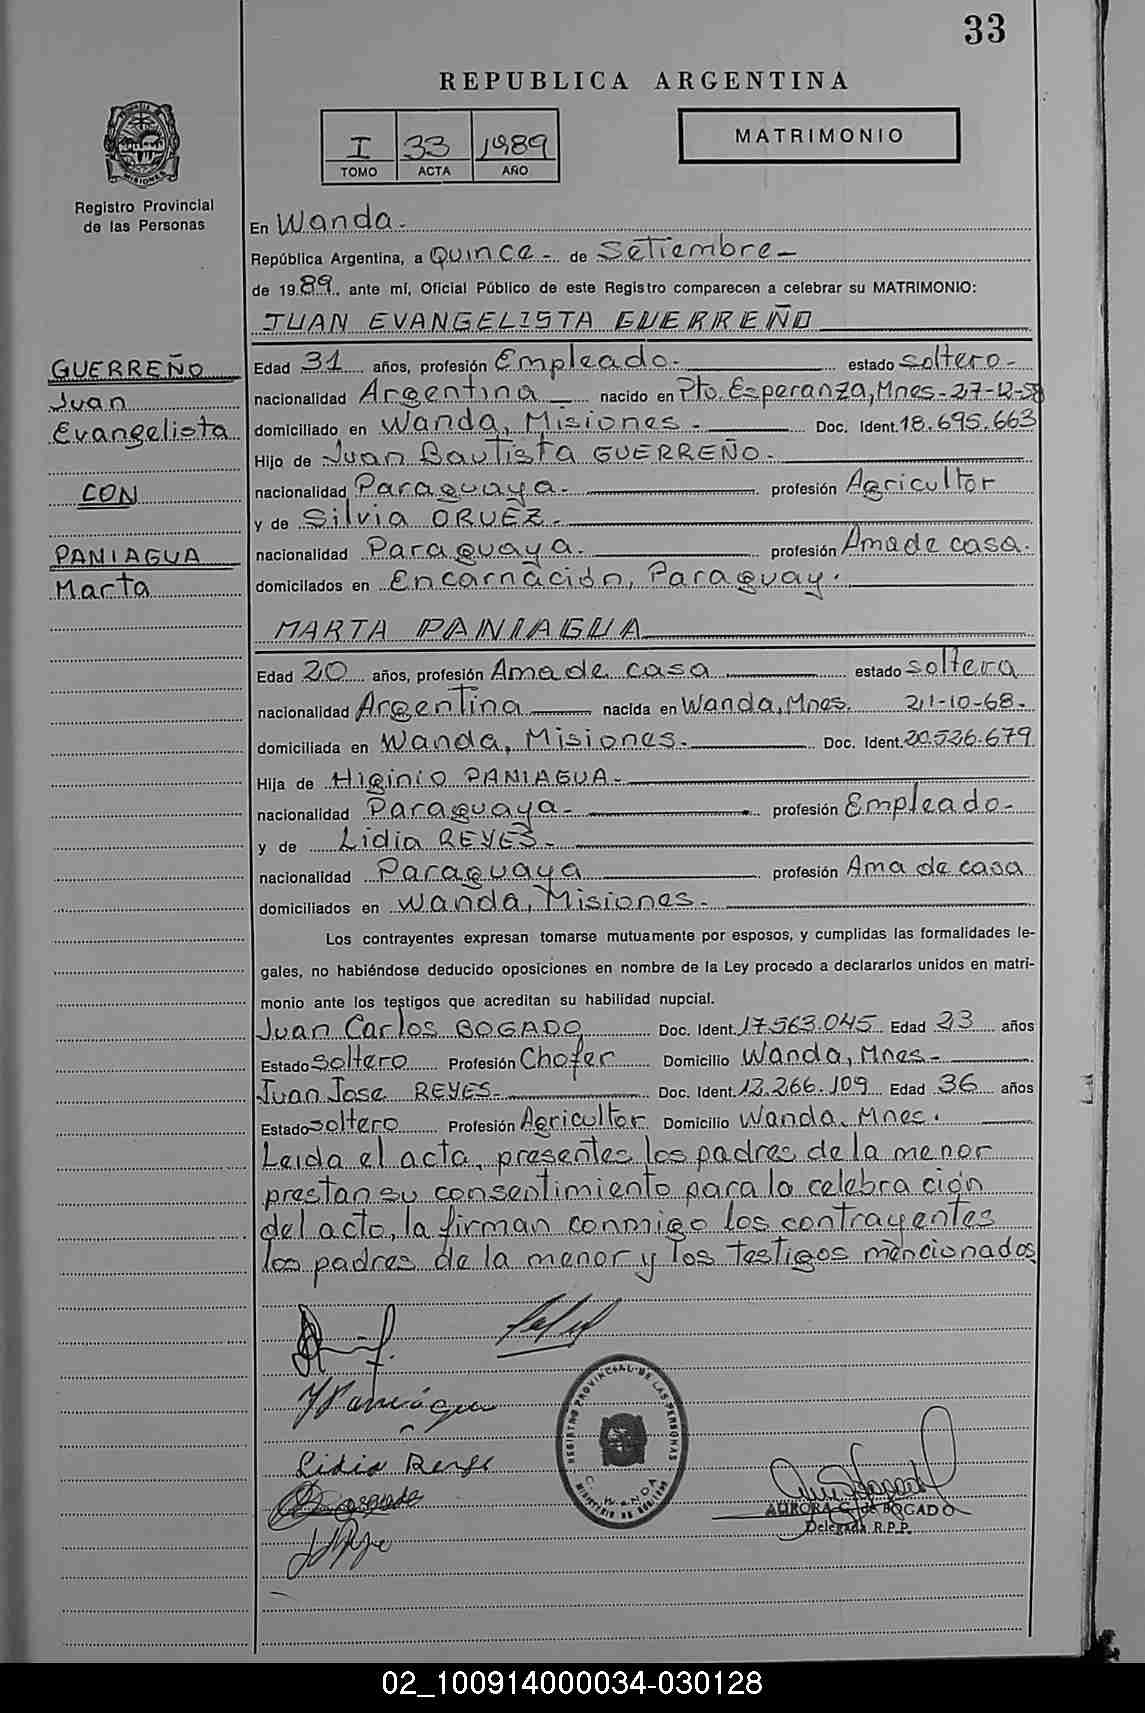 33
REPUBLICA ARGENTINA
I 33 1989
TOMO ACTA AÑO
MATRIMONIO
MISIONES
Registro Provincial
de las Personas
En Wanda.-
República Argentina, a Quince - de Setiembre -
de 1989, ante mí, Oficial Público de este Registro comparecen a celebrar su MATRIMONIO:
JUAN EVANGELISTA GUERREÑO
GUERREÑO
Juan
Evangelista
CON
PANIAGUA
Marta
Edad 31 años, profesión Empleado.- estado soltero-
nacionalidad Argentina nacido en Pto. Esperanza, Mnes-27-12-58
domiciliado en Wanda, Misiones.- Doc. Ident. 18.695.663
Hijo de Juan Bautista GUERREÑO.-
nacionalidad Paraguaya.- profesión Agricultor
y de Silvia ORUEZ.-
nacionalidad Paraguaya.- profesión Ama de casa.
domicilados en Encarnación, Paraguay.
MARTA PANIAGUA
Edad 20 años, profesión Ama de casa estado soltera
nacionalidad Argentina nacida en Wanda, Mnes. 21-10-68.
domiciliada en Wanda, Misiones.- Doc. Ident. 20.526.679
Hija de Higinio PANIAGUA.-
nacionalidad Paraguaya.- profesión Empleado.-
y de Lidia REYES.-
nacionalidad Paraguaya profesión Ama de casa
domiciliados en Wanda, Misiones.-
Los contrayentes expresan tomarse mutuamente por esposos, y cumplidas las formalidades le-
gales, no habiéndose deducido oposiciones en nombre de la Ley procedo a declararlos unidos en matri-
monio ante los testigos que acreditan su habilidad nupcial.
Juan Carlos BOGADO Doc. Ident. 17.563.045 Edad 23 años
Estado soltero Profesión Chofer Domicilio Wanda, Mnes-
Juan Jose REYES.- Doc. Ident. 12.266.109 Edad 36 años
Estado soltero Profesión Agricultor Domicilio Wanda, Mnes.
Leida el acta, presentes los padres de la menor
prestan su consentimiento para la celebración
del acto, la firman conmigo los contrayentes
los padres de la menor y los testigos mencionados
Lidia Reyes
REGISTRO PROVINCIAL DE LAS PERSONAS
WANDA
AURORA G. de BOGADO
Delegada R.P.P.
02_100914000034-030128